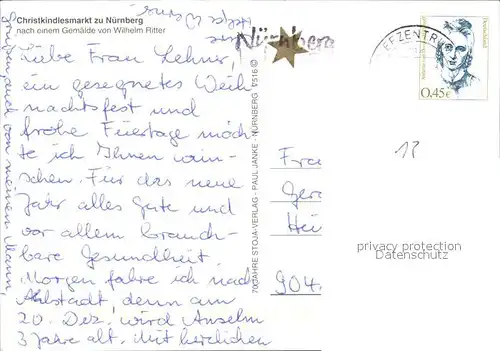 Christkindlesmarkt zu Nürnberg
nach einem Gemälde von Wilhelm Ritter
Liebe Frau Lehner,
ein gesegnetes Weih-
nachtsfest und
frohe Feiertage möch-
te ich Ihnen wün-
schen. Für das neue
Jahr alles Gute und
vor allem brauch-
bare Gesundheit.
Morgen fahre ich nach
Ahlstadt, denn am
20. Dez. wird Anselm
3 Jahre alt. Mit herzlichen
Grüßen, auch von meinem Mann,
Ihre
70 JAHRE STOJA-VERLAG - PAUL JANKE - NÜRNBERG 7516 ©
Nürnberg
BRIEFZENTRUM
Deutschland
0,45€
18
Frau
Ger
904
privacy protection
Datenschutz